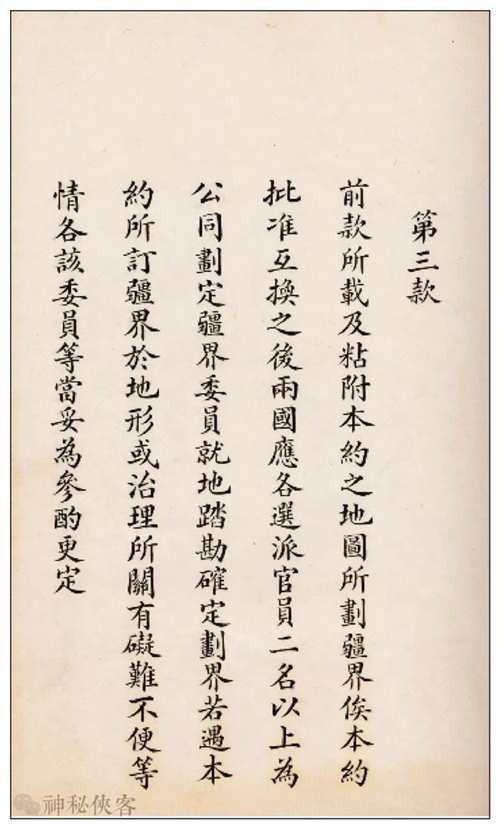 第三款
前款所載及粘附本約之地圖所劃疆界俟本約
批准互換之後兩國應各選派官員二名以上為
公同劃定疆界委員就地踏勘確定劃界若遇本
約所訂疆界於地形或治理所關有礙難不便等
情各該委員等當妥為參酌更定
神秘俠客